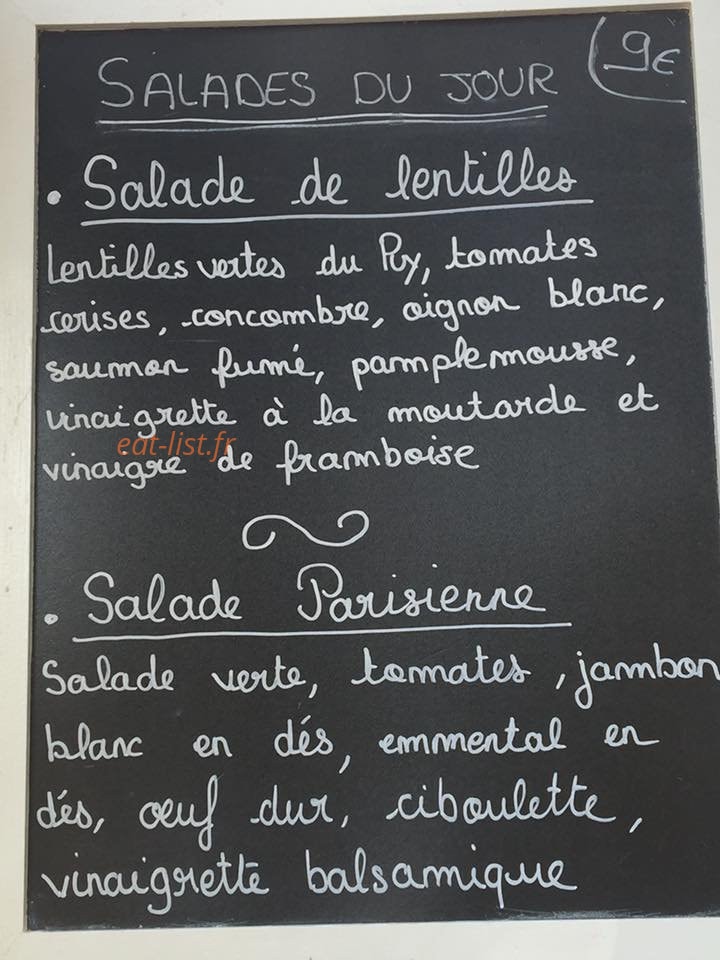 SALADES DU JOUR
9€
• Salade de lentilles
Lentilles vertes du Puy, tomates
cerises, concombre, oignon blanc,
saumon fumé, pamplemousse,
vinaigrette à la moutarde et
eat-list.fr
vinaigre de framboise
• Salade Parisienne
Salade verte, tomates, jambon
blanc en dés, emmental en
dés, œuf dur, ciboulette,
vinaigrette balsamique